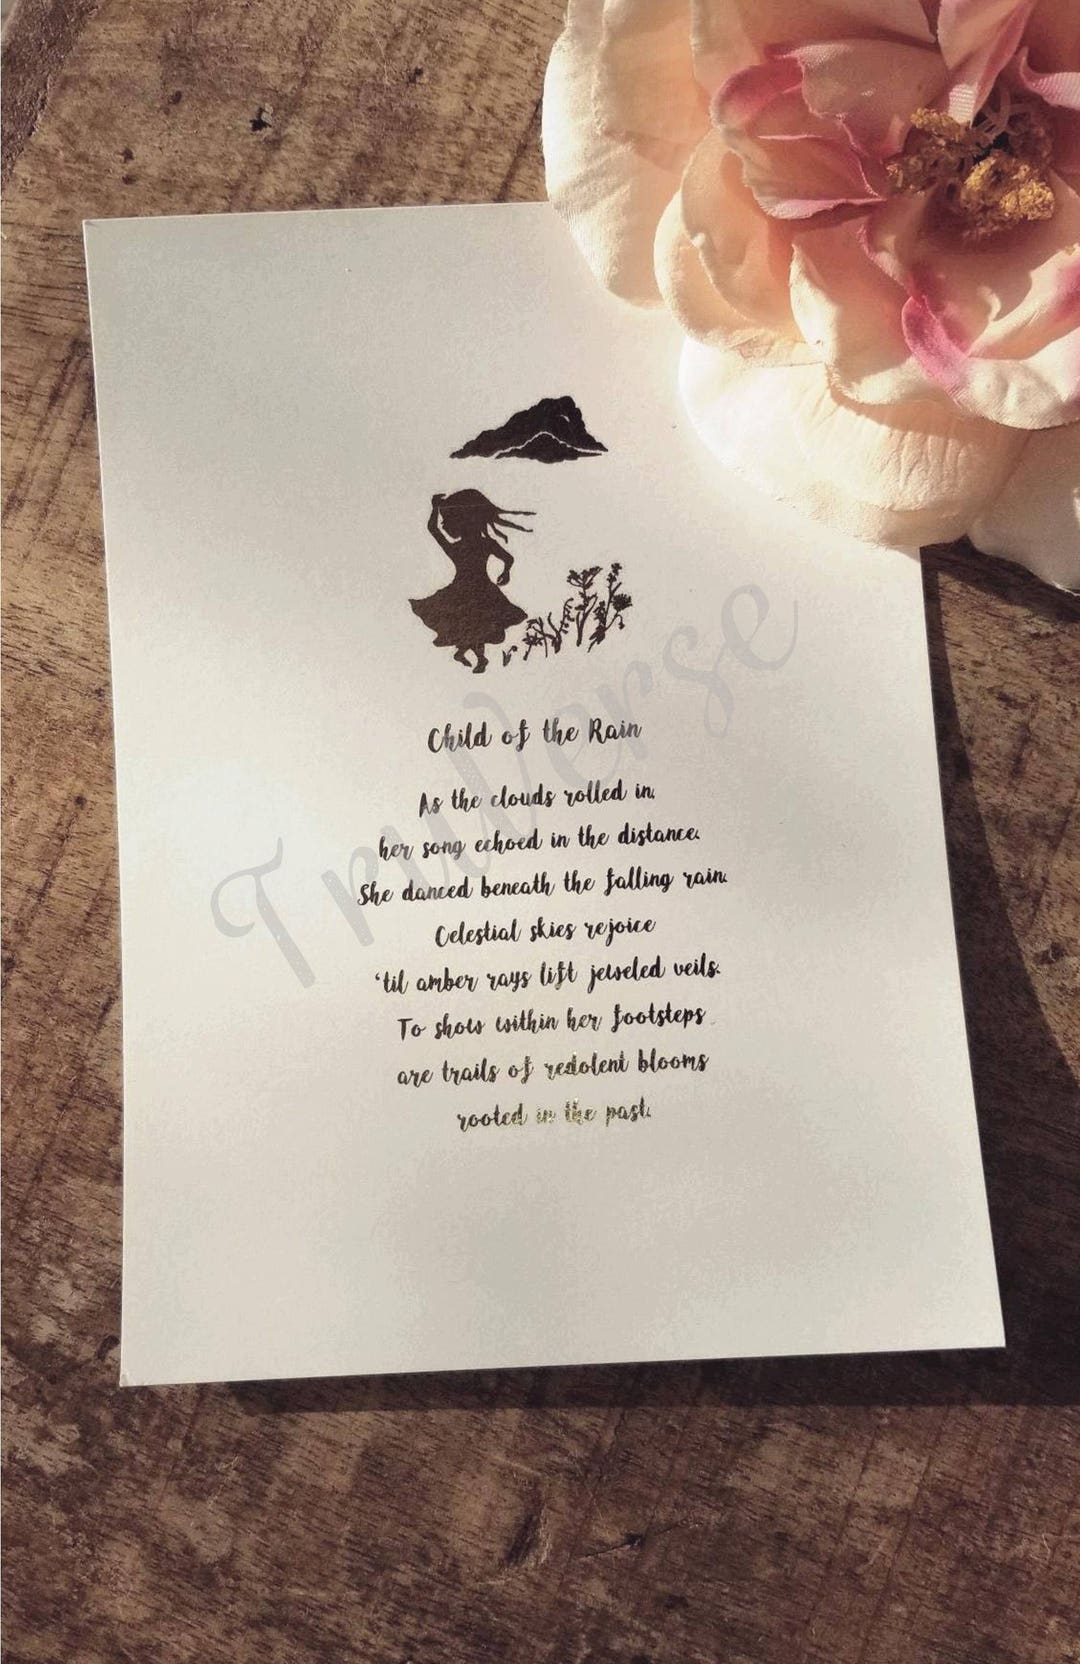 Child of the Rain
As the clouds rolled in,
her song echoed in the distance.
She danced beneath the falling rain.
Celestial skies rejoice
‘til amber rays lift jeweled veils.
To show within her footsteps
are trails of redolent blooms
rooted in the past.
TruVerse